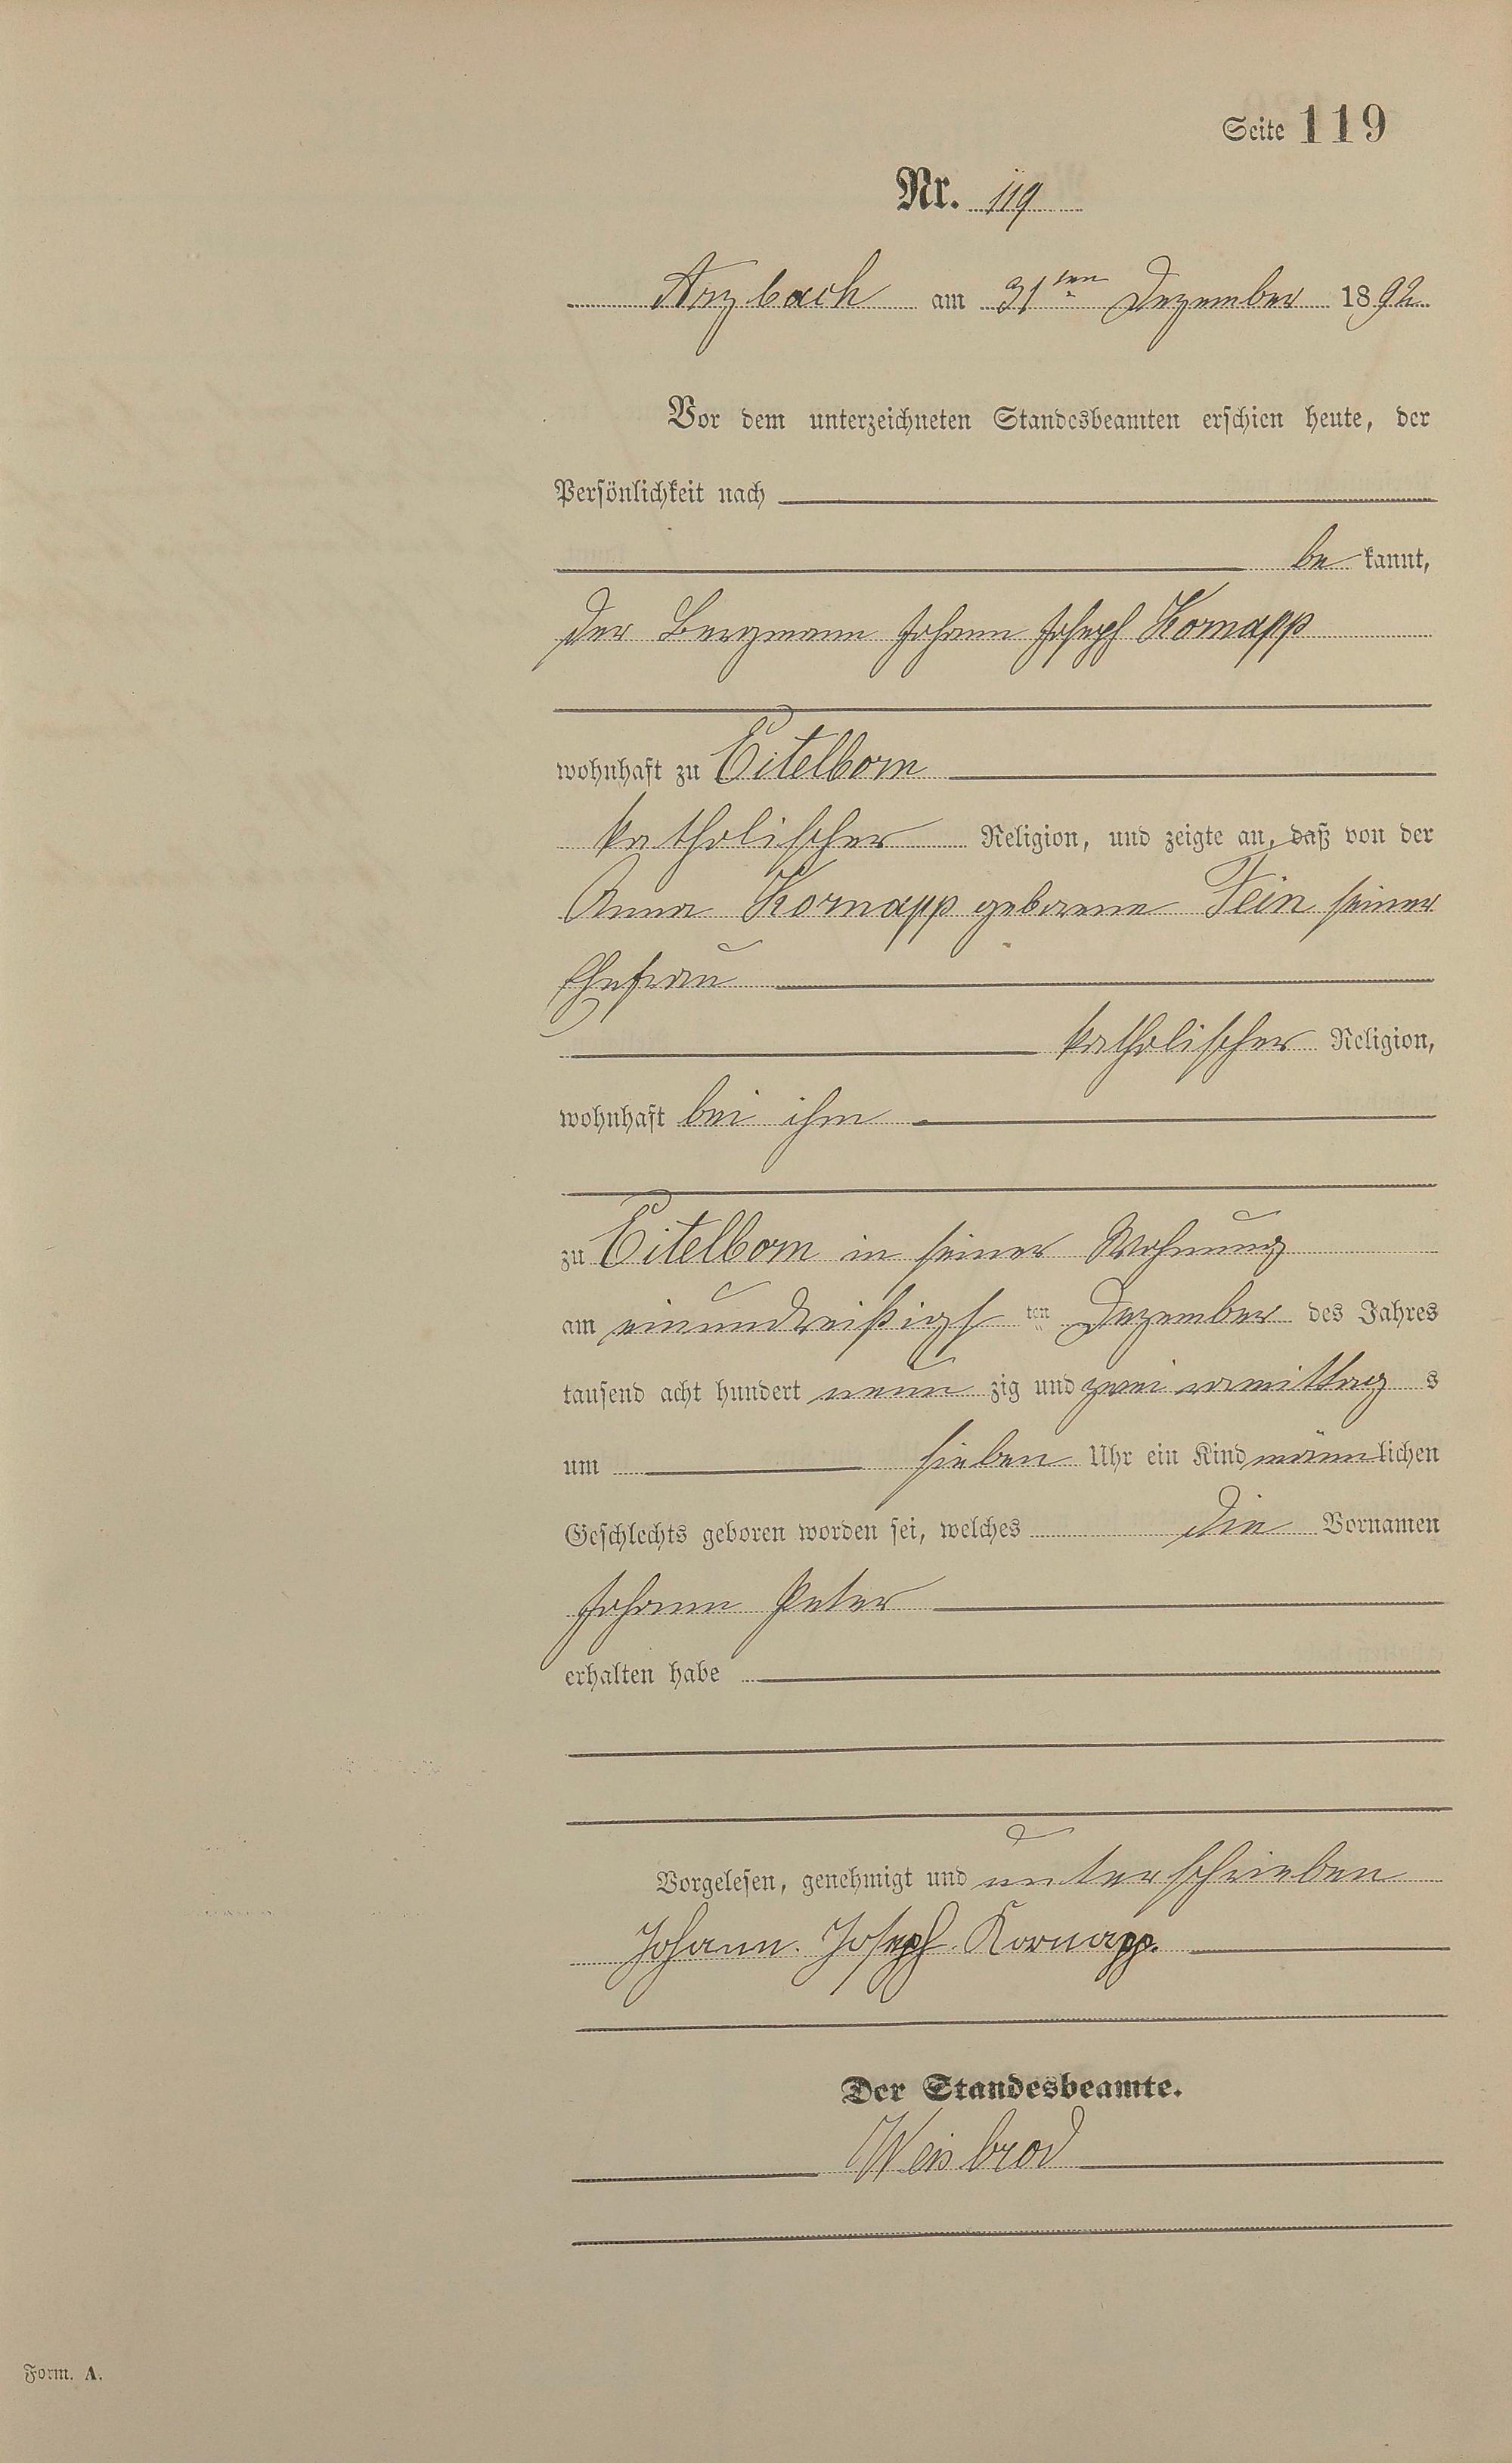 Seite 119
Nr. 119
Arzbach am 31ten Dezember 1892
Vor dem unterzeichneten Standesbeamten erschien heute, der
Persönlichkeit nach
bekannt,
der Bergmann Johann Joseph Kornapp
wohnhaft zu Eitelborn
katholischer Religion, und zeigte an, daß von der
Anna Kornapp geborene Fein seiner
Ehefrau
katholischer Religion,
wohnhaft bei ihm
zu Eitelborn in seiner Wohnung
am einunddreißigsten Dezember des Jahres
tausend acht hundert neunzig und zwei vormittags
um sieben Uhr ein Kind männlichen
Geschlechts geboren worden sei, welches die Vornamen
Johann Peter
erhalten habe
Vorgelesen, genehmigt und unterschrieben
Johann. Joseph. Kornapp.
Der Standesbeamte.
Weisbrod
Form. A.